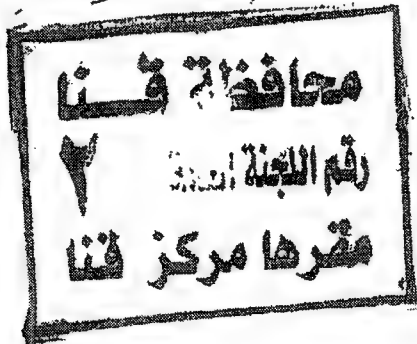 محافظة قنا
رقم اللجنة العامة ٢
مقرها مركز قنا